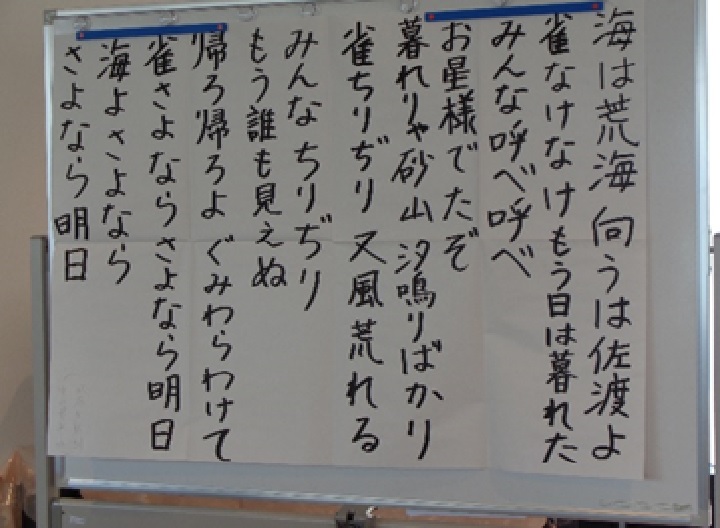 海は荒海 向うは佐渡よ
雀なけなけもう日は暮れた
みんな呼べ呼べ
お星様でたぞ
暮れりゃ砂山 汐鳴りばかり
雀ちりぢり 又風荒れる
みんなちりぢり
もう誰も見えぬ
帰ろ帰ろよ ぐみわらわけて
雀さよなら さよなら明日
海よさよなら
さよなら明日